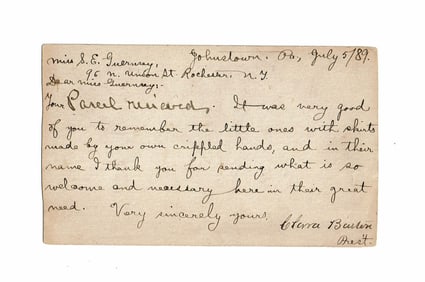 Johnstown. Pa, July 5/89.
Miss S. E. Guernsey,
95 N. Union St Rochester. N. Y.
Dear Miss Guernsey;-
Your Parcel received. It was very good
of you to remember the little ones with shirts
made by your own crippled hands, and in their
name I thank you for sending what is so
welcome and necessary here in their great
need. Very sincerely yours,
Clara Barton
Prest.